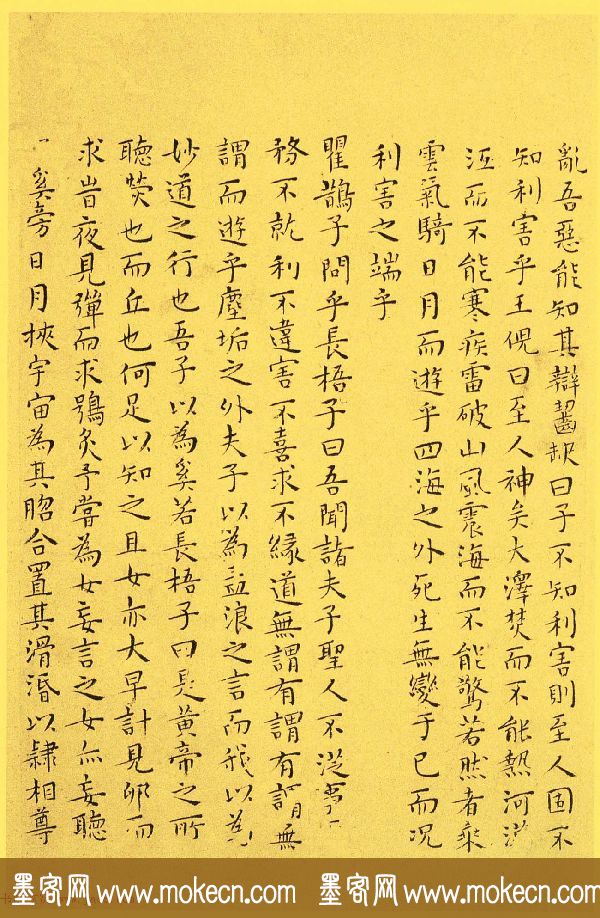 亂吾惡能知其辯齧缺曰子不知利害則至人固不
知利害乎王倪曰至人神矣大澤焚而不能熱河沍
沍而不能寒疾雷破山風震海而不能驚若然者乘
雲氣騎日月而遊乎四海之外死生無變于已而况
利害之端乎
瞿鵲子問乎長梧子曰吾聞諸夫子聖人不從事
務不就利不違害不喜求不緣道無謂有謂有謂無
謂而遊乎塵垢之外夫子以為孟浪之言而我以為
妙道之行也吾子以為奚若長梧子曰是黃帝之所
聽熒也而丘也何足以知之且女亦大早計見卵而
求時夜見彈而求鴞炙予嘗為女妄言之女亦妄聽
奚旁日月挾宇宙為其脗合置其滑涽以隸相尊
墨客网 www.mokecn.com 墨客网 www.mokecn.com